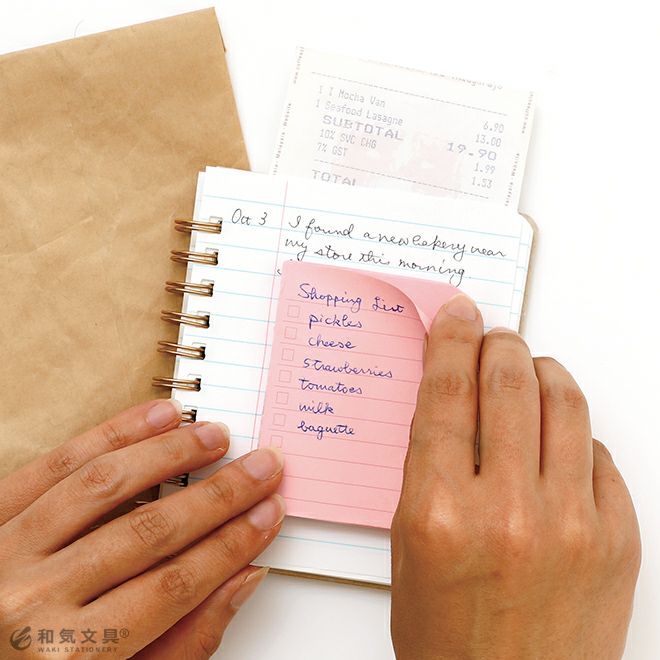 1 I Mocha Van 6.90
1 Seafood Lasagne 13.00
SUBTOTAL 19.90
10% SVC CHG 1.99
7% GST 1.53
TOTAL
Oct 3 I found a new bakery near
my store this morning
Shopping List
pickles
cheese
strawberries
tomatoes
milk
baguette
和気文具®
WAKI STATIONERY